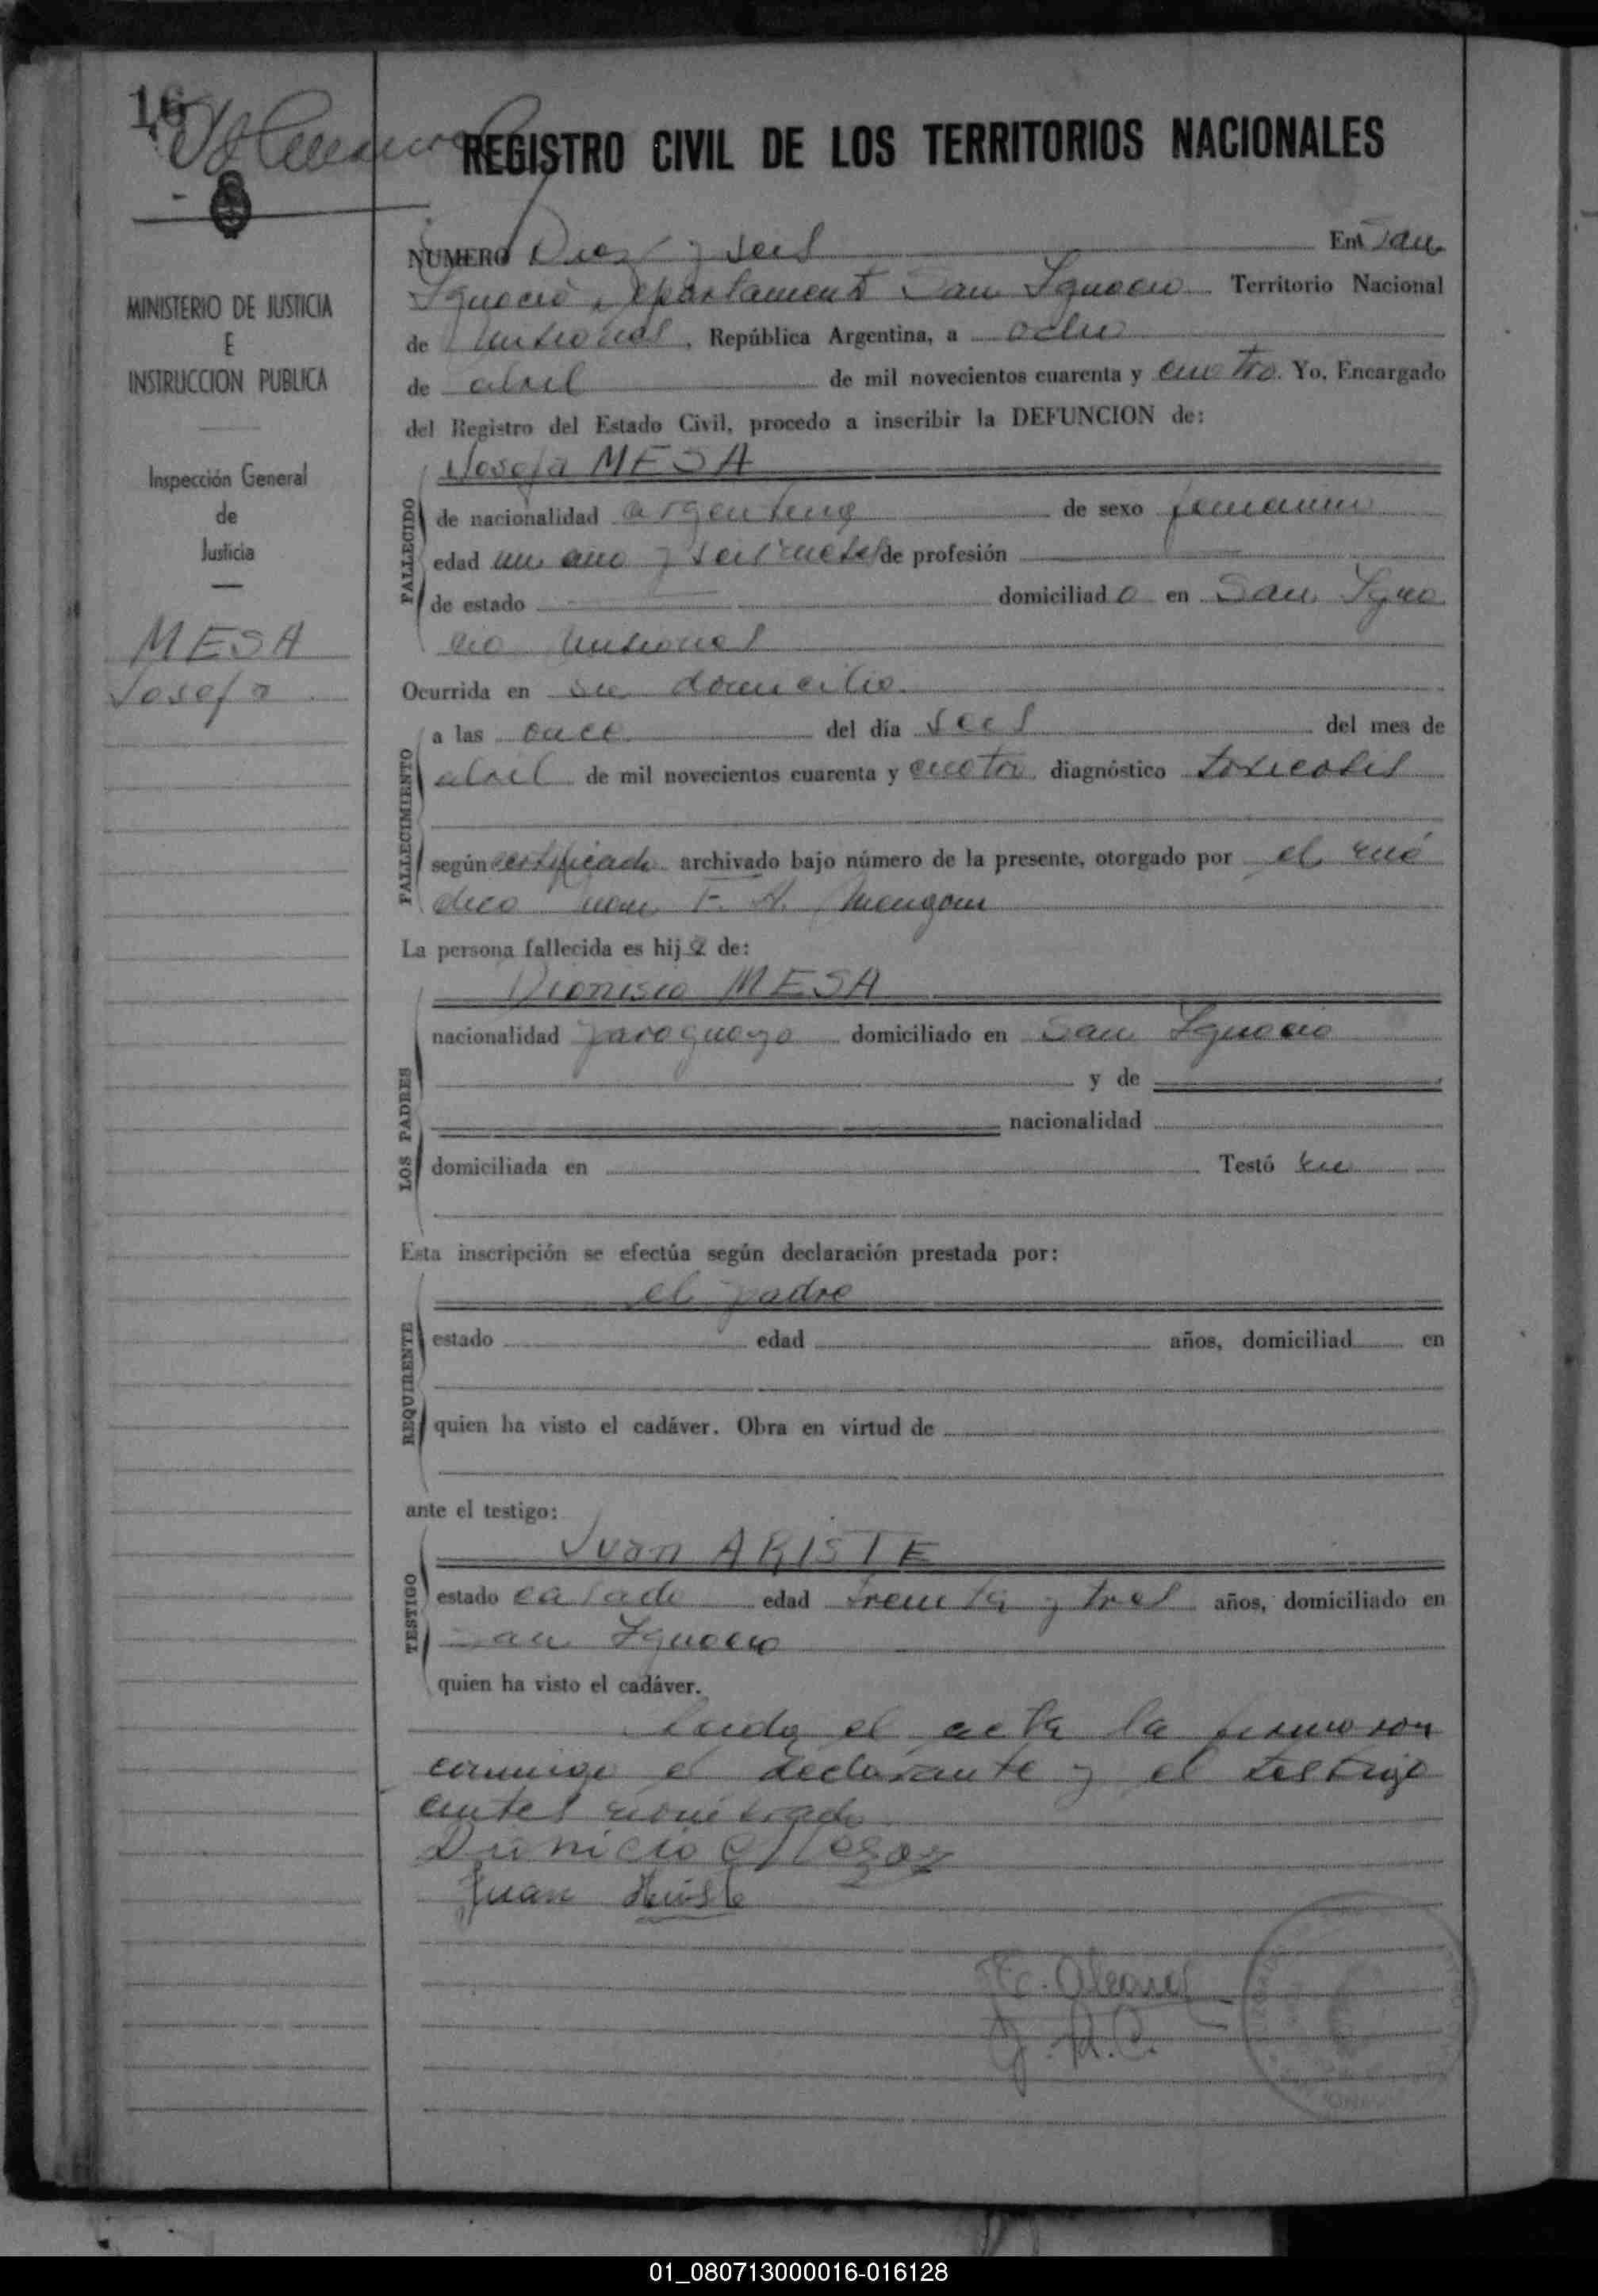 16
REGISTRO CIVIL DE LOS TERRITORIOS NACIONALES
MINISTERIO DE JUSTICIA
E
INSTRUCCION PUBLICA
Inspección General
de
Justicia
MESA
Josefa
NUMERO Diez y seis En San
Ignacio, Departamento San Ignacio Territorio Nacional
de Misiones, República Argentina, a ocho
de abril de mil novecientos cuarenta y cuatro. Yo, Encargado
del Registro del Estado Civil, procedo a inscribir la DEFUNCION de:
Josefa MESA
FALLECIDO
de nacionalidad argentina de sexo femenino
edad un año y seis meses de profesión
de estado domiciliado en San Igna
cio Misiones
Ocurrida en su domicilio
FALLECIMIENTO
a las once del día seis del mes de
abril de mil novecientos cuarenta y cuatro diagnóstico toxicosis
según certificado archivado bajo número de la presente, otorgado por el mé
dico Juan F. A. Mengoni
La persona fallecida es hija de:
Dionisio MESA
LOS PADRES
nacionalidad paraguayo domiciliado en San Ignacio
y de
nacionalidad
domiciliada en Testó
Esta inscripción se efectúa según declaración prestada por:
el padre
REQUIRENTE
estado edad años, domiciliad en
quien ha visto el cadáver. Obra en virtud de
ante el testigo:
Juan ARISTE
TESTIGO
estado casado edad treinta y tres años, domiciliado en
San Ignacio
quien ha visto el cadáver.
Leida el acta la firmaron
conmigo el declarante y el testigo
antes nombrado
Juan Ariste
J. R. C.
01_080713000016-016128